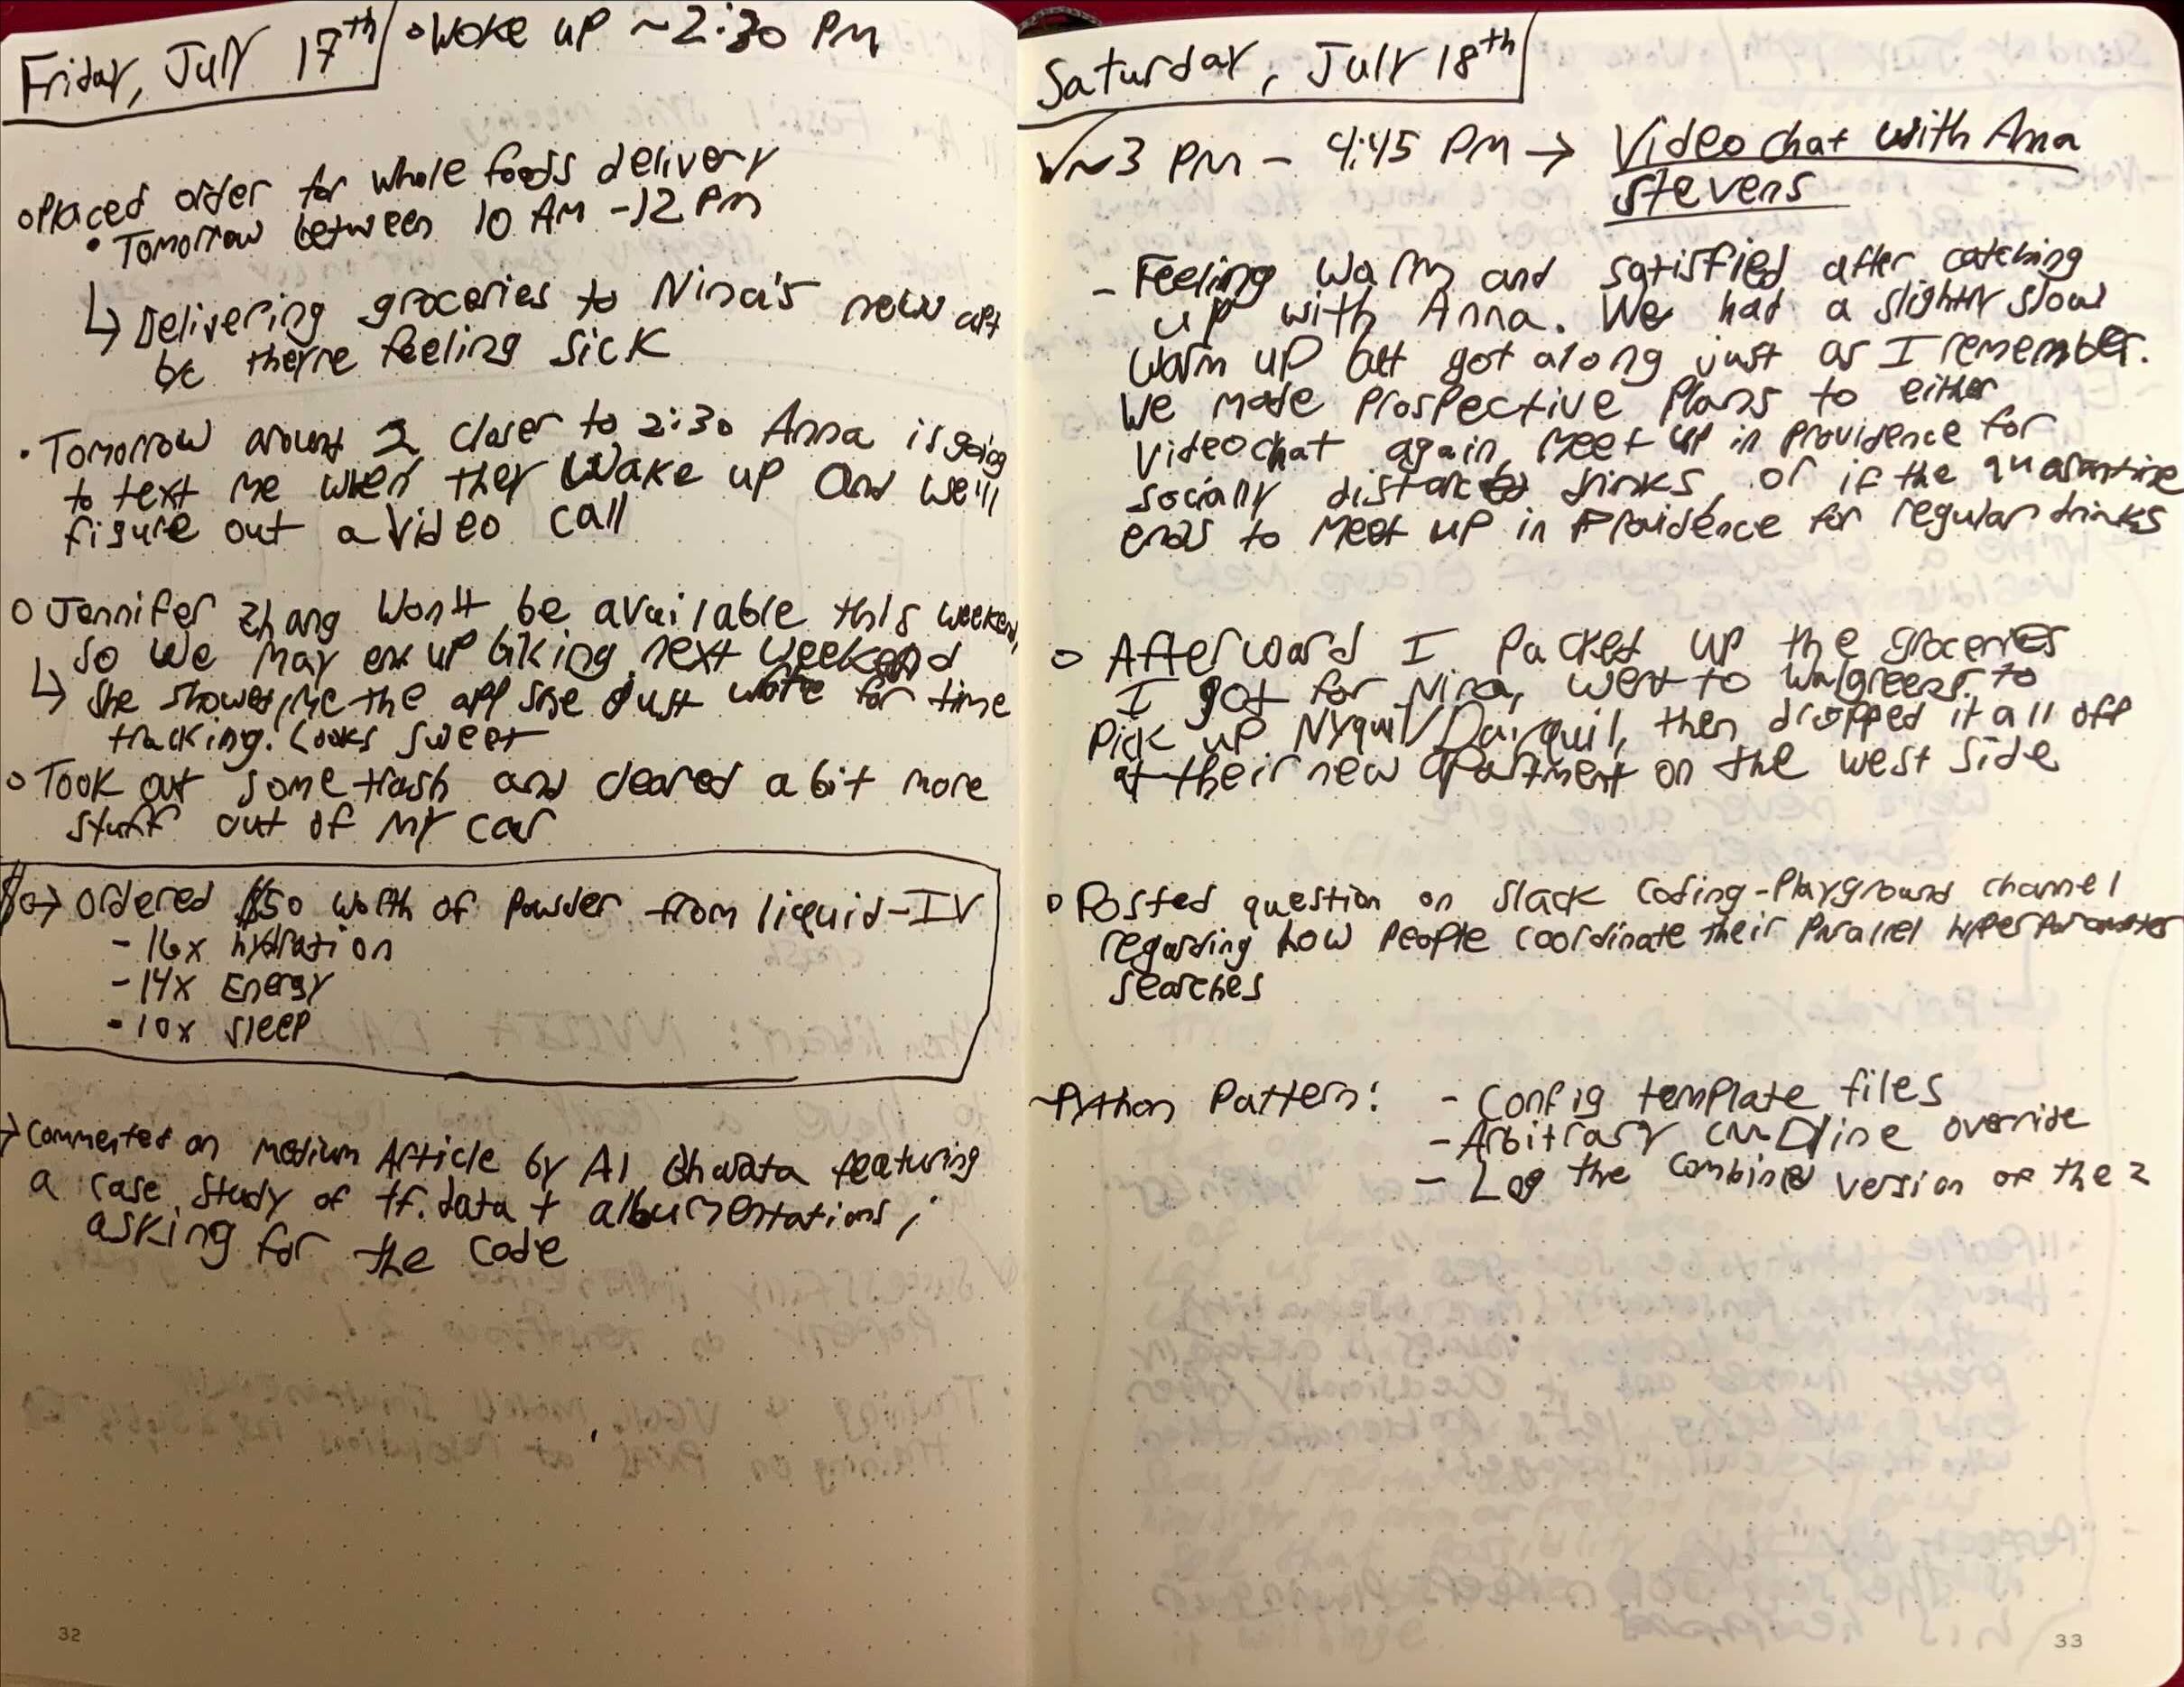 Friday, July 17th
• Woke up ~2:30 PM
○ Placed order for whole foods delivery
• Tomorrow between 10 AM - 12 PM
↳ Delivering groceries to Nina's new apt
bc they're feeling sick
• Tomorrow around 2, closer to 2:30 Anna is going
to text me when they wake up and we'll
figure out a video call
○ Jennifer Zhang won't be available this weekend,
so we may end up biking next weekend
↳ She showed me the app she just wrote for time
tracking. Looks sweet
○ Took out some trash and cleared a bit more
stuff out of my car
$ → Ordered $50 worth of powder from liquid-IV
- 16x hydration
- 14x Energy
- 10x sleep
→ Commented on medium Article by Al featuring
a case study of tf.data + albumentations;
asking for the code
32
Saturday, July 18th
✓ ~3 PM - 4:45 PM → Video chat with Anna
Stevens
- Feeling warm and satisfied after catching
up with Anna. We had a slightly slow
warm up but got along just as I remember.
We made prospective plans to either
videochat again, meet up in providence for
socially distanced drinks, or if the quarantine
ends to meet up in Providence for regular drinks
○ Afterward I packed up the groceries
I got for Nina, went to Walgreens to
pick up Nyquil/Dayquil, then dropped it all off
at their new apartment on the west side
○ Posted question on Slack Coding-Playground channel
regarding how people coordinate their parallel hyperparameter
searches
- Python Pattern: - Config template files
- Arbitrary CMDline override
- Log the combined version of the 2
33